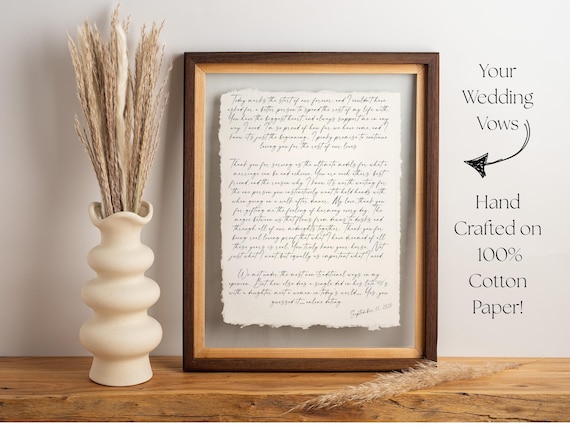 Today marks the start of our forever, and I wouldn't have
asked for a better person to spend the rest of my life with.
You have the biggest heart and always support me in any
way I need. I'm so proud of how far we have come, and I
know it's just the beginning. I pinky promise to continue
loving you for the rest of our lives.
Thank you for serving as the ultimate models for what a
marriage can be and achieve. You are each others best
friend and the reason why I know it's worth waiting for
the one person you instantly want to hold hands with
when going on a walk after dinner. My love, thank you
for gifting me the feeling of harmony every day. The
magic between us that flows from dawn to dusk and
through all of our midnights together. Thank you for
being real living proof that what I have dreamed of all
these years is real. You truly know your horse. Not
just what I want but equally as important what I need.
We met under the most non traditional ways in my
opinion. But how else does a single dad in his late
with a daughter meet a woman in today's world... Yes, you
guessed it... online dating.
September
Your
Wedding
Vows
Hand
Crafted on
100%
Cotton
Paper!